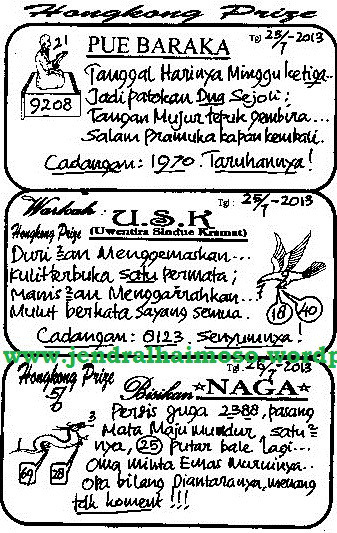 Hongkong Prize
Tgl 25/7-2013
PUE BARAKA
21
9208
Tanggal Harinya Minggu ketiga..
Jadi patokan Dua Sejoli;
Tangan Mujur tepuk gembira...
Salam Pramuka kapan kembali.
Cadangan: 1970. Taruhannya!
Warkah:
Tgl: 25/7-2013
U.S.K
Hongkong Prize
(Uwentira Sindue Kramat)
Duri 2an Menggemaskan...
Kulit terbuka satu permata;
Manis 2an Menggairahkan...
Mulut berkata sayang semua.
18 40
Cadangan: 8123. Senyumnya!
www.jendralhaimoso.wordp
Hongkong Prize
Tgl 26/7-2013
Bisikan ★NAGA★
3
69 28
Persis juga 2388, pasang
Mata Maju mundur, satu2
nya, 25 Putar bale lagi...
Oma minta Emas Murninya..
Opa bilang Diantaranya, menang
tdk koment!!!